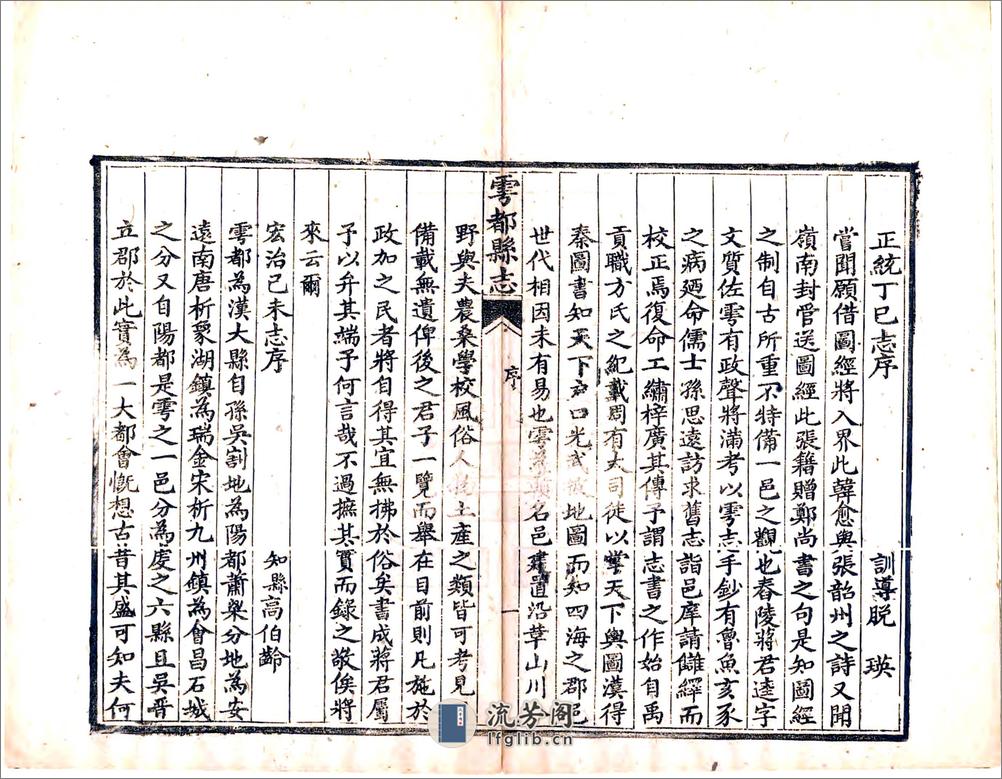 正統丁巳志序
訓導脫　瑛
嘗聞願借圖經將入界此韓愈與張韶州之詩又聞
嶺南封管送圖經此張籍贈鄭尚書之句是知圖經
之制自古所重不特備一邑之觀也舂陵蔣君逵字
文質佐雩有政聲將滿考以雩志手鈔有魯魚亥豕
之病廼命儒士孫思遠訪求舊志詣邑庠請讎繹而
校正焉復命工繡梓廣其傳予謂志書之作始自禹
貢職方氏之紀載周有大司徒以掌天下輿圖漢得
秦圖書知天下戶口光武披地圖而知四海之郡邑
世代相因未有易也雩為名邑建置沿革山川
雩都縣志
序
一
野與夫農桑學校風俗人土產之類皆可考見
備載無遺俾後之君子一覽而舉在目前則凡施於
政加之民者將自得其宜無拂於俗矣書成蔣君屬
予以弁其端予何言哉不過摭其實而錄之敬俟將
來云爾
宏治己未志序
知縣高伯齡
雩都為漢大縣自孫吳割地為陽都蕭梁分地為安
遠南唐析象湖鎮為瑞金宋析九州鎮為會昌石城
之分又自陽都是雩之一邑分為虔之六縣且吳晉
立郡於此實為一大都會慨想古昔其盛可知夫何
流芳阁
lfglib.cn